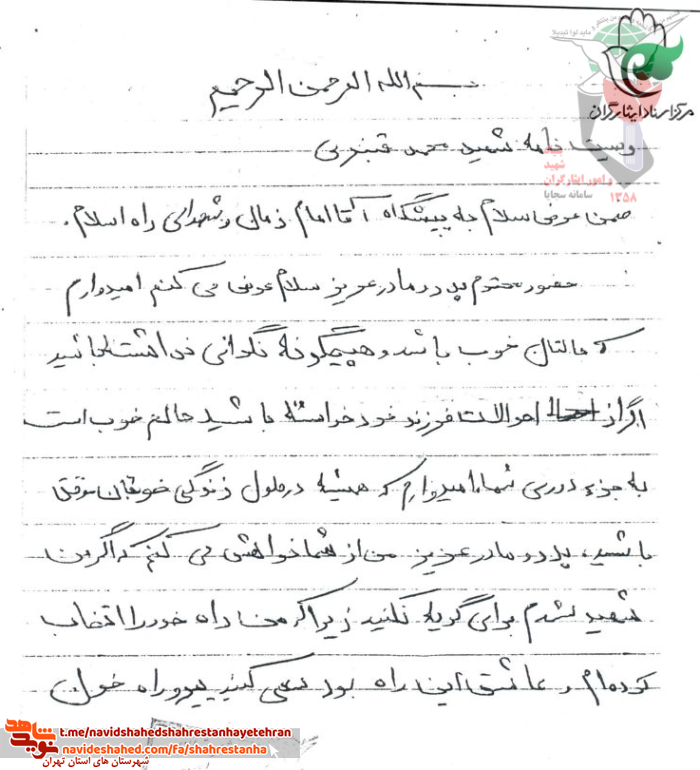 بسم الله الرحمن الرحیم
مرکز اسناد ایثارگران
وصیت نامه شهید محمد قنبری
شهید
و امور ایثارگران
سامانه سجایا
۱۳۵۸
ضمن عرض سلام به پیشگاه آقا امام زمان و شهدای راه اسلام.
حضور محترم پدر و مادر عزیز سلام عرض می کنم امیدوارم
که حالتان خوب باشد و هیچگونه نگرانی نداشته باشید
اگر از احوالات فرزند خود خواسته باشید حالم خوب است
به جزء دوری شما، امیدوارم که همیشه در طول زندگی خودتان موفق
باشید، پدر و مادر عزیز من از شما خواهش می کنم که اگر من
شهید شدم برای گریه نکنید زیرا که من راه خود را انتخاب
کرده ام و عاشق این راه بود سعی کنید پیرو راه
شاهد
نوید
t.me/navidshahedshahrestanhayetehran
navideshahed.com/fa/shahrestanha
شهرستان های استان تهران